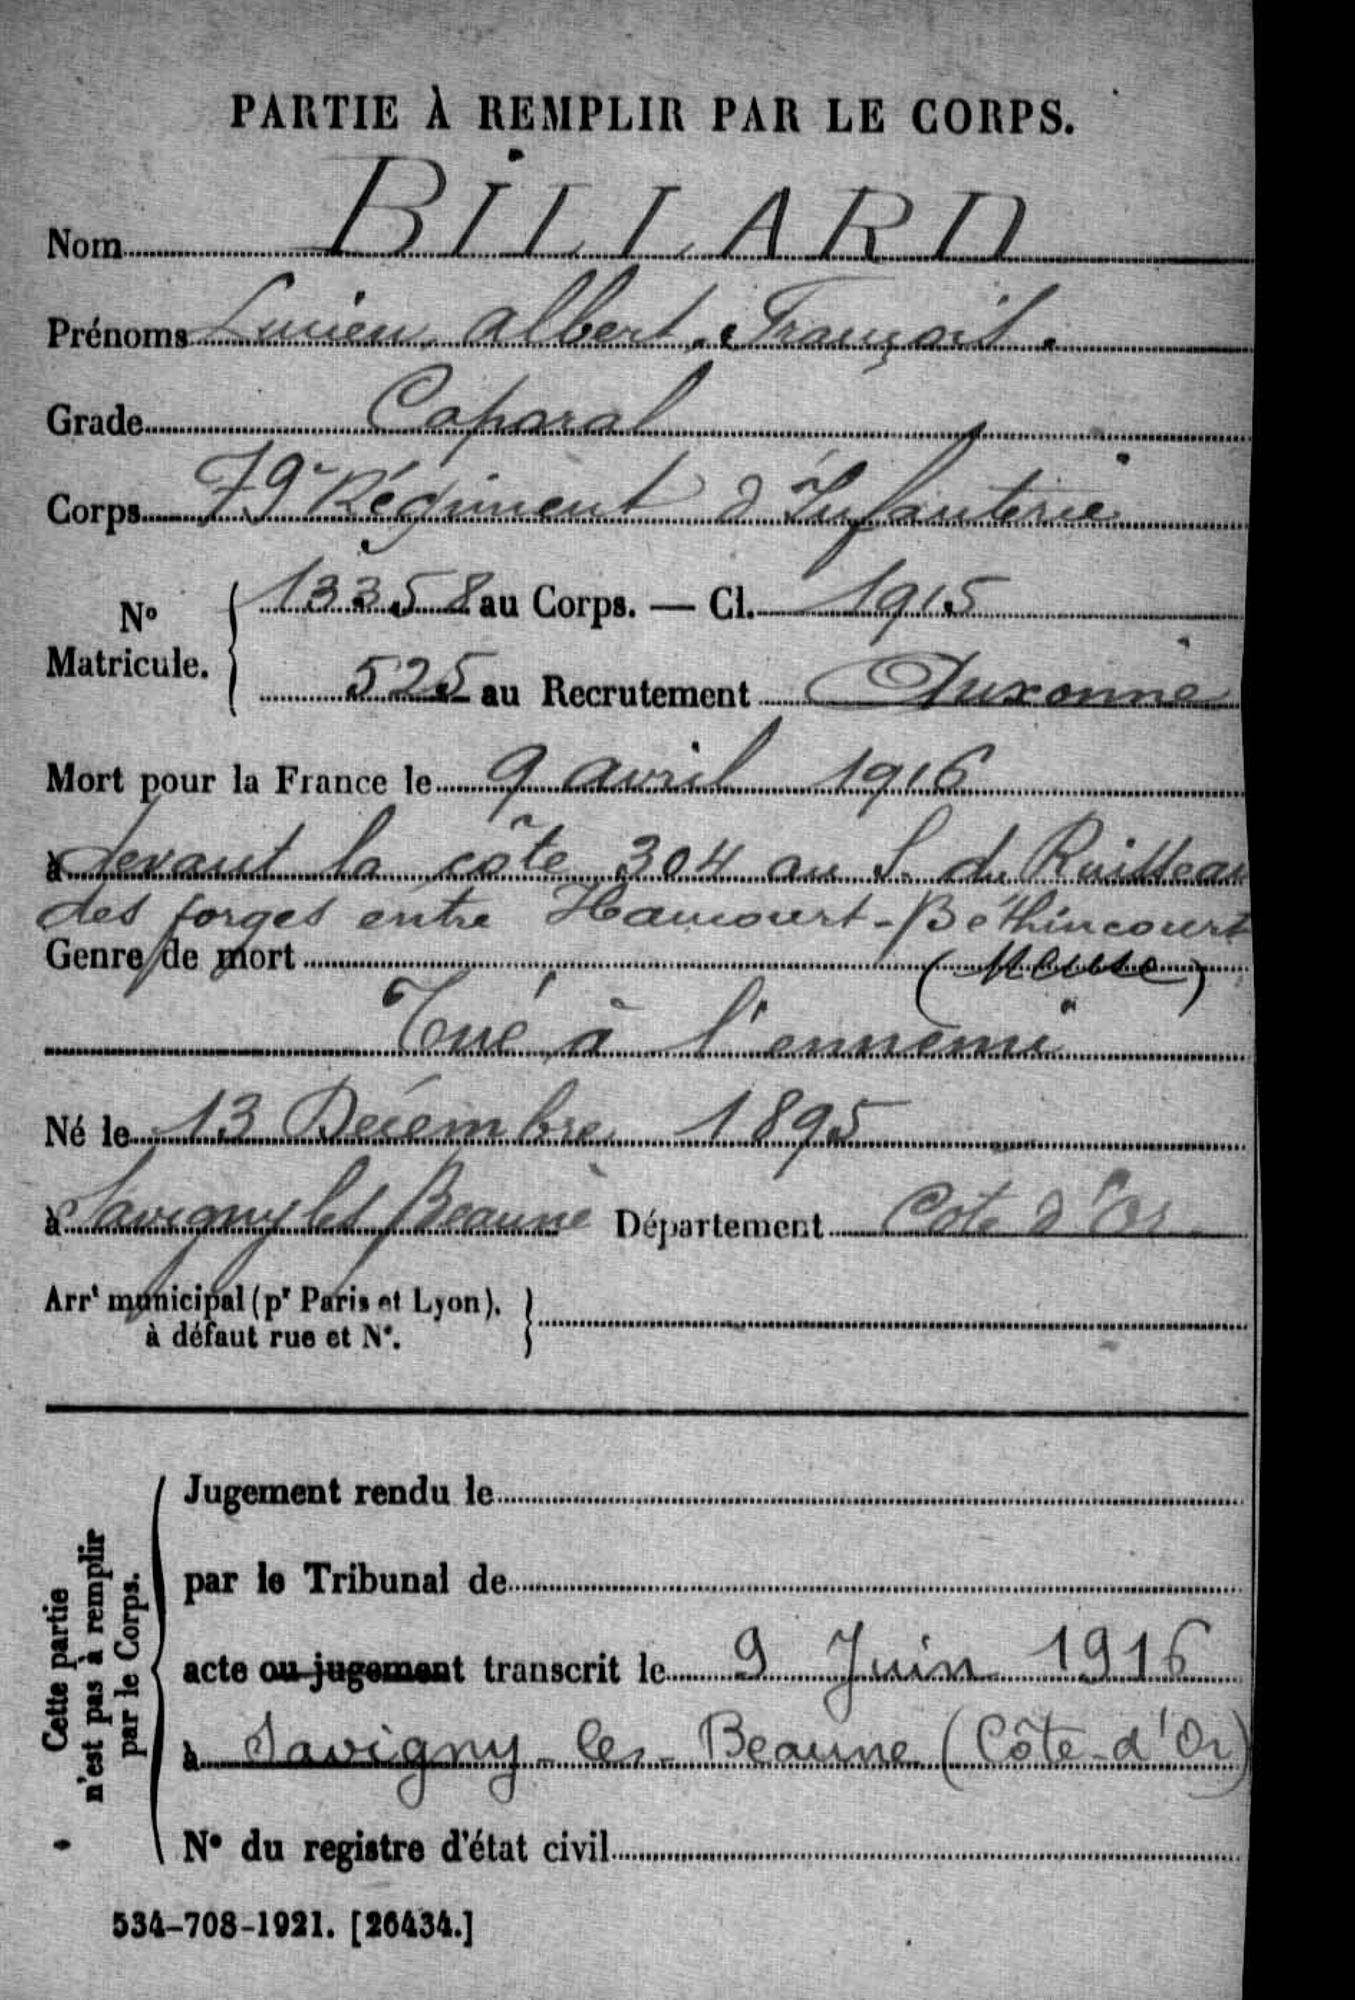 PARTIE À REMPLIR PAR LE CORPS.
Nom BILLARD
Prénoms Lucien Albert François.
Grade Caporal
Corps 79e Régiment d'Infanterie
No Matricule. { 13358 au Corps. — Cl. 1915
525 au Recrutement Auxonne
Mort pour la France le 9 avril 1916
à devant la côte 304 au S. du Ruisseau
des forges entre Haucourt-Béthincourt
Genre de mort (Meuse)
Tué à l'ennemi
Né le 13 Décembre 1895
à Savigny les Beaune Département Côte d'Or
Arrt municipal (pr Paris et Lyon), à défaut rue et No. }
Cette partie n'est pas à remplir par le Corps.
Jugement rendu le
par le Tribunal de
acte ou jugement transcrit le 9 Juin 1916
à Savigny-les-Beaune (Côte-d'Or)
No du registre d'état civil
534-708-1921. [26434.]